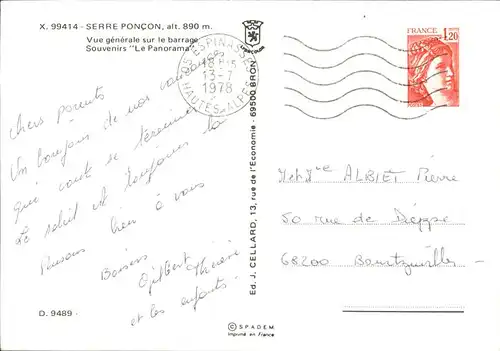 X. 99414 - SERRE PONÇON, alt. 890 m.
Vue générale sur le barrage
Souvenirs "Le Panorama"
Chers parents
Un bonjour de nos vacances
qui vont se terminer
Le soleil est toujours là
Pensons bien à vous
Baisers
Gilbert
et les enfants
D. 9489
ESPINASSES
13-7
1978
HAUTES-ALPES
Ed. J. CELLARD, 13, rue de l'Economie - 69500 BRON
FRANCE
1,20
ALBIET Pierre
50 rue de Dieppe
68200 Bourtzwiller
© SPADEM
Imprimé en France